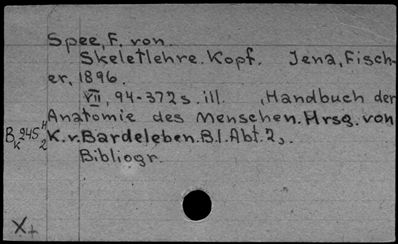 Spee, F. von.
Skeletlehre. Kopf. Jena, Fisch-
er, 1896.
VII, 94-372 s. ill. (Handbuch der
Anatomie des Menschen. Hrsg. von
K. v. Bardeleben. B.I. Abt. 2).
Bibliogr.
X+